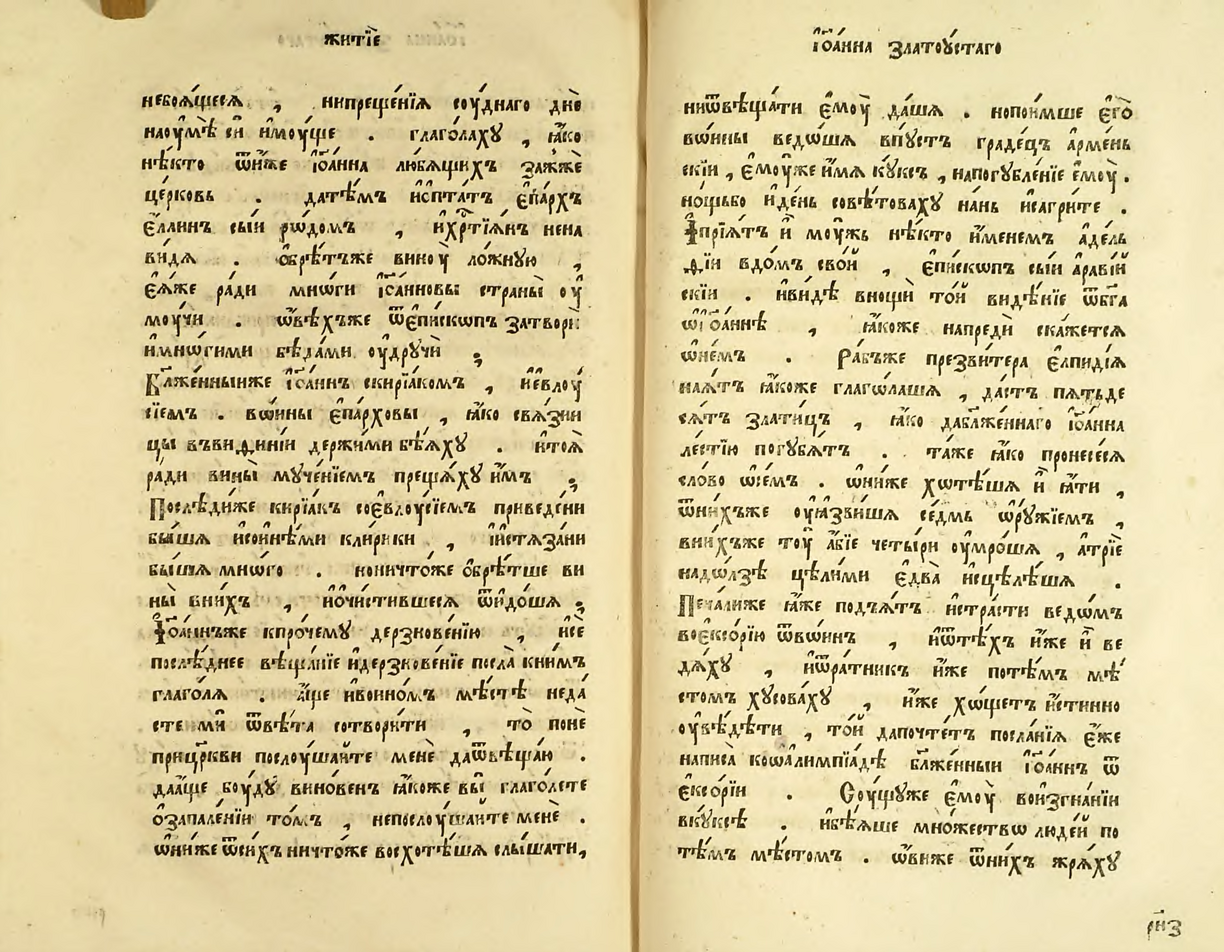 житїе
небоѧ́щеесѧ , нипреще́нїѧ соу́днаго днѐ
наоу҆мѣ̀ си и҆мꙋ́ще . глаго́лахꙋ , ꙗ҆́ко
нѣ́кто ѿни́же і҆ѡа́нна любѧ́щихъ зажжѐ
це́рковь . дате́мъ и҆спта́тъ є҆па́рхъ
є҆́ллинъ сы́и ро́домъ , и҆хр҃тїѧ́нъ нена
ви́дѧ . ѡ҆брѣ́тъже винꙋ̀ ло́жнꙋю ,
є҆ѧ́же ра́ди мнѡ́ги і҆ѡа́нновы страны̀ оу҆
моу́чи . ѡ҆вѣ́хъже ѿє҆пи́скопъ затвори̂
и҆мнѡ́гими бѣда́ми оу҆дрꙋчѝ ;
Бл҃же́нныиже і҆ѡа́ннъ скирїа́комъ , и҆є҆влоу́
сїемъ . во́ины є҆па́рховы , ꙗ҆́ко свѧ́зни
цы въвиѳи́нїи держи́ми бѣ́ѧхꙋ . и҆тоѧ̀
ра́ди вины̀ мꙋче́нїемъ преща́хꙋ и҆̀мъ ;
Послѣ́диже кирїа́къ соє҆влоу́сїемъ приведе́ни
бы́шѧ и҆сои҆нѣ́ми кли́рики , и҆и҆стѧ́зани
бы́шѧ мнѡ́го . ꙗ҆ничто́же ѡ҆брѣ́тше ви
ны̀ вни́хъ , и҆ѡ҆чи́стившесѧ ѿидо́шѧ ;
І҆ѡа́ннъже кпро́чемꙋ дерзнове́нїю , и҆сѐ
послѣ́днее вѣща́нїе и҆дерзнове́нїе посла̀ кни́мъ
глаго́лѧ . а҆́ще и҆вои҆но́мъ мѣ́стѣ неда́
сте мѝ ѿвѣ́та сотвори́ти , то̀ понѐ
прицр҃кви послоу́шайте менѐ даѿвѣща́ю .
даа҆́ще бꙋ́дꙋ вино́венъ ꙗ҆́коже вы̀ глаго́лете
ѡ҆запале́нїи то́мъ , непослоу́шайте менѐ .
ѡ҆ни́же ѿси́хъ ничто́же восхотѣ́шѧ слы́шати,
і҆ѡа́нна златоу́стаго
ниѿвѣща́ти є҆моу̀ да́шѧ . нопои́мше є҆го̀
во́ины ведо́шѧ впꙋ́стъ граде́цъ а҆рме́нь
скїи , є҆моу́же и҆́мѧ кꙋ́ксъ , напогꙋбле́нїе є҆моу̀ .
но́щьбо и҆де́нь совѣ́товахꙋ на́нь и҆сагри́те .
І҆прїѧ́тъ и҆̀ моу́жь нѣ́кто и҆́менемъ а҆де́ль
фїи вдо́мъ сво́й , є҆пи́скопъ сы́и а҆раві́й
скїи . и҆ви́дѣ вно́щи то́й видѣ́нїе ѿбг҃а
ѡ҆і҆ѡа́ннѣ , ꙗ҆́коже напредѝ ска́жетсѧ
ѡ҆не́мъ . Ра́бъже презви́тера є҆лпи́дїѧ
наѧ́тъ ꙗ҆́коже глаго́лашѧ , да́стъ пѧтьде
сѧ́тъ злати́цъ , ꙗ҆́ко дабл҃же́ннаго і҆ѡа́нна
ле́стїю погꙋ́бѧтъ . та́же ꙗ҆́ко пронесе́сѧ
сло́во ѡ҆се́мъ . ѡ҆ни́же хотѣ́шѧ и҆̀ ꙗ҆́ти ,
ѿни́хъже оу҆ꙗзви́шѧ се́дмь ѡ҆рꙋ́жїемъ ,
вни́хъже тоу̀ а҆́бїе четы́ри оу҆мро́шѧ , а҆трїѐ
надо́лзѣ цѣли́ми є҆два̀ и҆сцѣлѣ́шѧ .
Печа́лиже ꙗ҆́же подъѧ́тъ и҆стра́сти ведо́мъ
воє҆ксо́рїю ѿво́инъ , и҆ѿтѣ́хъ и҆́же и҆̀ ве
дѧ́хꙋ , и҆ѿра́тникъ и҆́же поте́мъ мѣ́
стомъ хꙋ́совахꙋ , и҆́же хо́щетъ и҆́стинно
оу҆вѣ́дѣти , то́й дапочте́тъ посла́нїѧ є҆́же
написа̀ коѡ҆алимпїа́дѣ бл҃же́нныи і҆ѡа́ннъ ѿ
є҆ксо́рїи . Соу́щꙋже є҆моу̀ воизгна́нїи
вкꙋ́ксѣ . и҆бѣ́ѧше мно́жество люде́й по
тѣ́мъ мѣ́стомъ . ѡ҆ви́же ѿни́хъ жрѧ́хꙋ
рн҃з